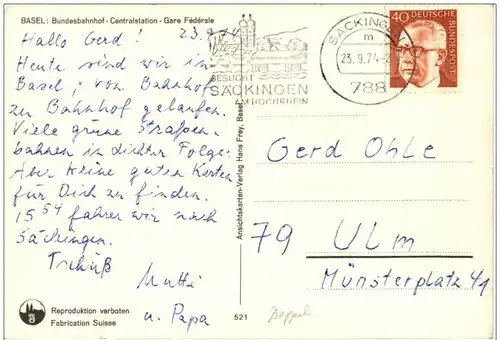 BASEL: Bundesbahnhof - Centralstation - Gare Fédérale
23.9.74
Hallo Gerd!
Heute sind wir in
Basel; von Bahnhof
zu Bahnhof gelaufen.
Viele grüne Straßen-
bahnen in dichter Folge.
Aber keine guten Karten
für Dich zu finden.
15 54 fahren wir nach
Säckingen.
Tschüß
Mutti
u. Papa
BESUCHT
SÄCKINGEN
AM HOCHRHEIN
SÄCKINGEN
m
23.9.74
788
40
DEUTSCHE
BUNDESPOST
Gerd Ohle
79 Ulm
Münsterplatz 41
Ansichtskarten-Verlag Hans Frey, Basel
Reproduktion verboten
Fabrication Suisse
521
Doppel